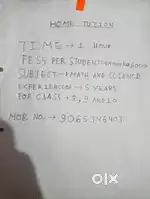 HOME TUTION
TIME → 1 HOUR
FESS PER STUDENT
SUBJECT → MATH AND SCIENCE
EXPERIENCE → 5 YEARS
FOR CLASS → 8, 9 AND 10
MOB NO. →
OLX